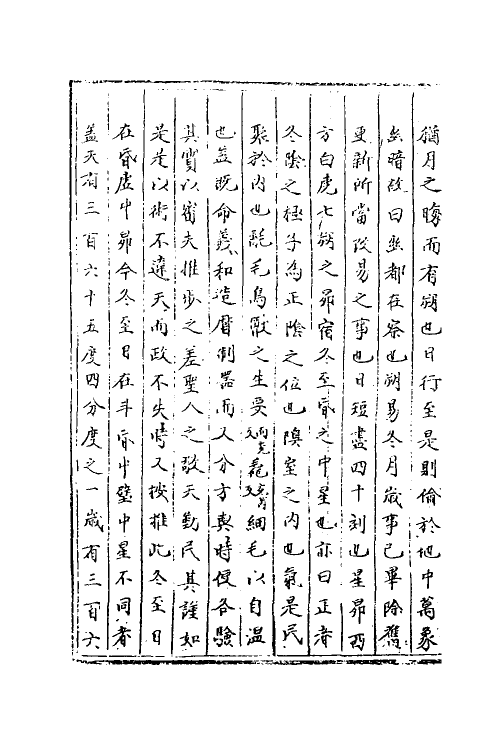 猶月之晦而有朔也日行至是則淪於地中萬象
幽暗故曰幽都在察也朔易冬月歲事已畢除舊
更新所當改易之事也日短晝四十刻也星昴西
方白虎七宿之昴宿冬至昏之中星也亦曰正者
冬隂之極子為正隂之位也隩室之内也氣寒民
聚於内也氄毛鳥獸之生耎毳細毛以自温
也盖既命羲和造曆制器而又分方與時使各驗
其實以審夫推步之差聖人之敬天勤民其謹如
是是以術不違天而政不失時又按推此冬至日
在虚昏中昴今冬至日在斗昏中壁中星不同者
盖天有三百六十五度四分度之一歲有三百六